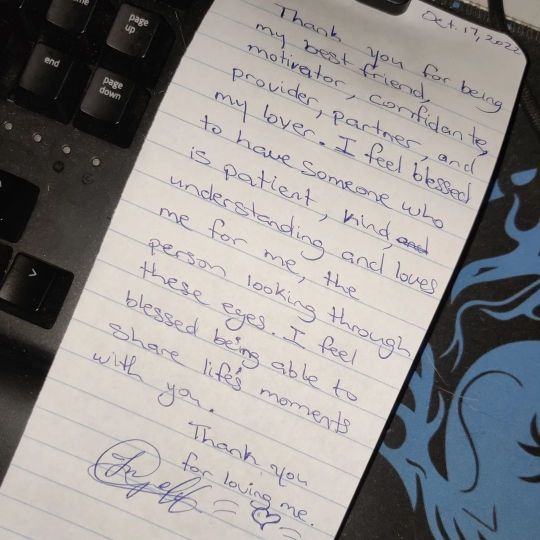 page up
end
page down
>
Oct. 17, 2022
Thank you for being
my best friend,
motivator, confidante,
provider, partner, and
my lover. I feel blessed
to have someone who
is patient, kind, and
understanding and loves
me for me, the
person looking through
these eyes. I feel
blessed being able to
share life's moments
with you.
Thank you
for loving me.